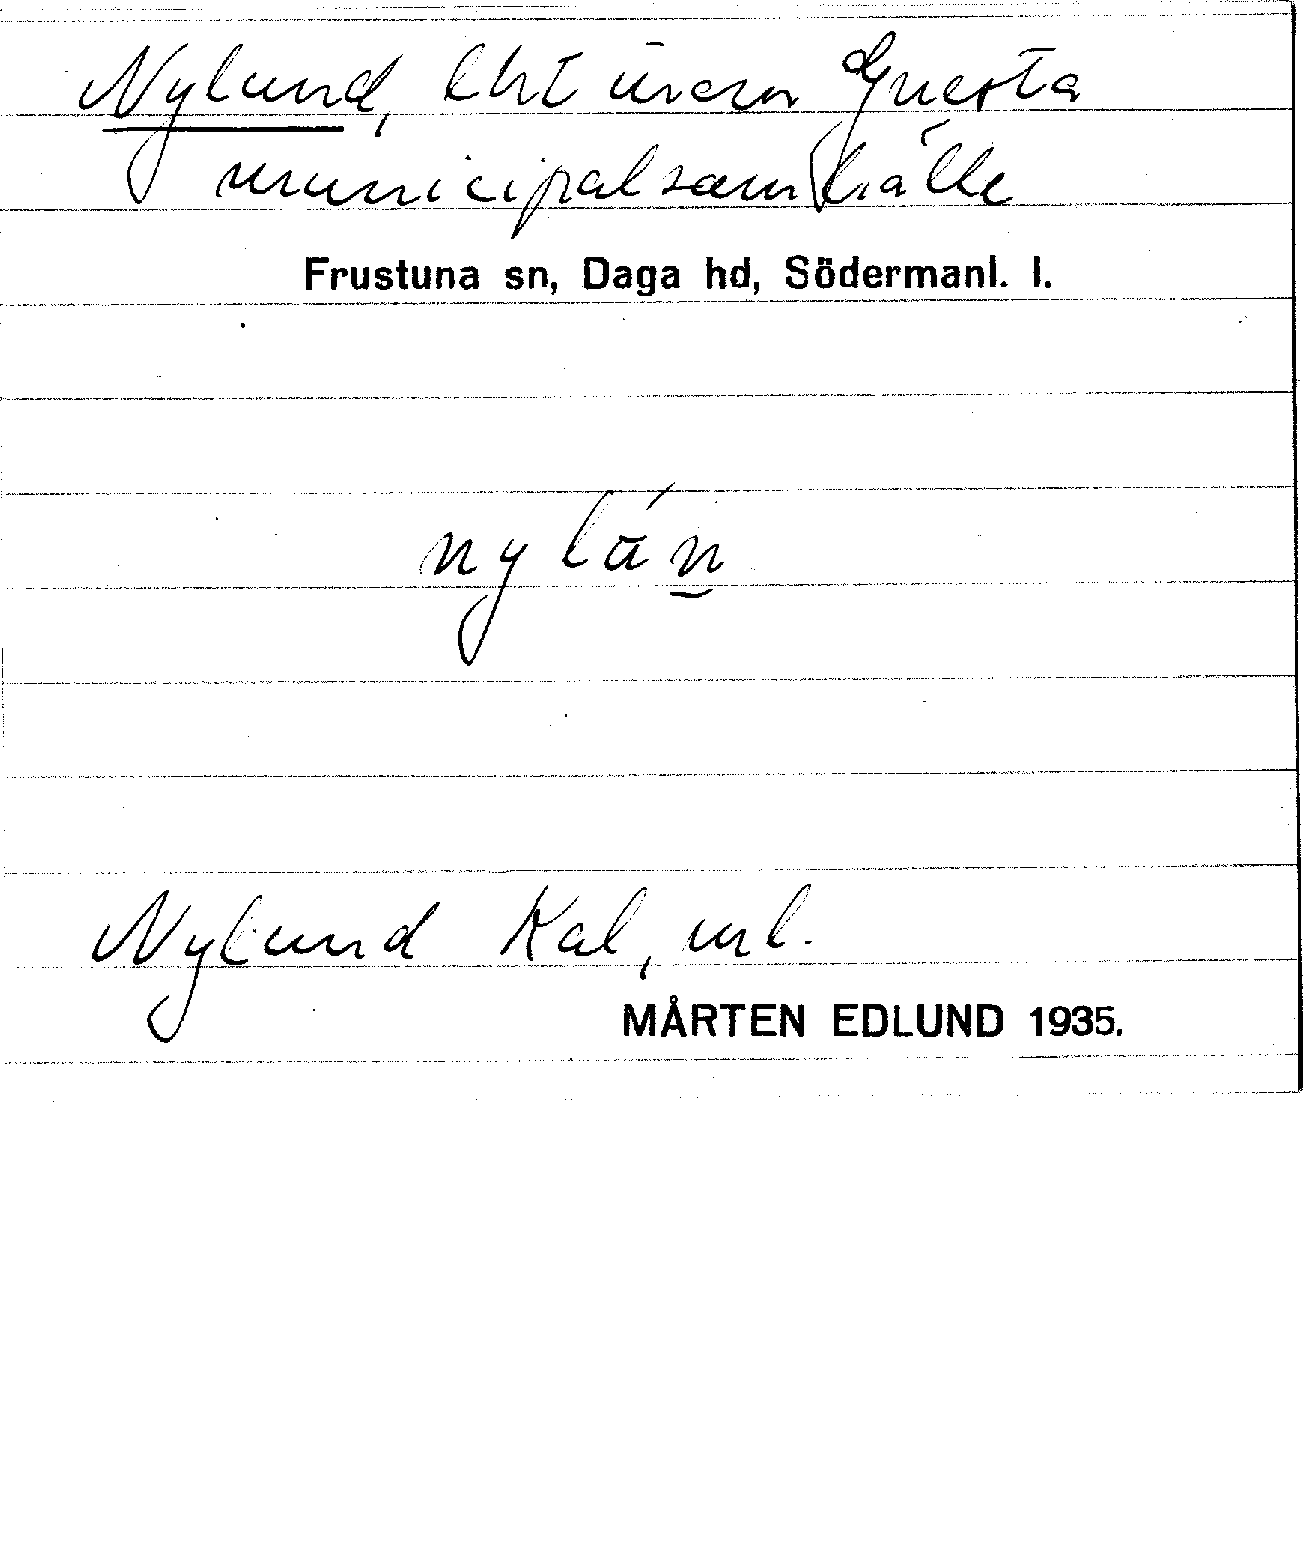 Nylund, lht inom Gnesta
municipalsamhälle
Frustuna sn, Daga hd, Södermanl. l.
Nylund Kal, ml.
MÅRTEN EDLUND 1935.